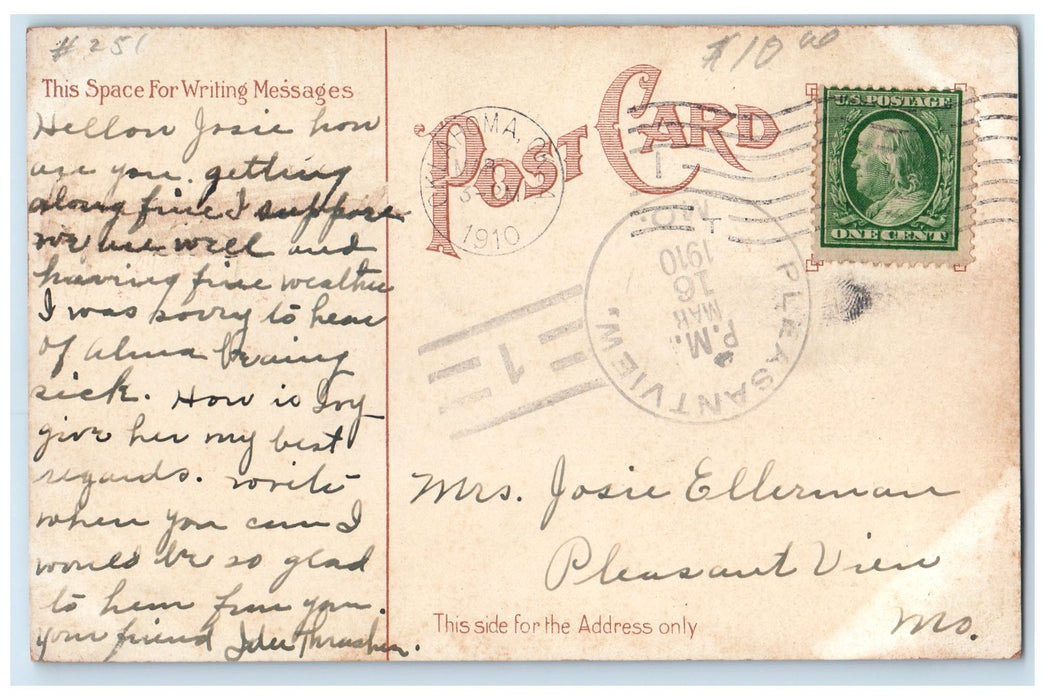 #251
$10.00
This Space For Writing Messages
Hellow Josie how
are you. getting
along fine I suppose
we are well and
having fine weather
I was sorry to hear
of Alma being
sick. How is Ivy
give her my best
regards. write
when you can I
would be so glad
to hear from you.
your friend Ider Thrasher.
POST CARD
OKLAHOMA, OKLA
8
1910
1
U.S. POSTAGE
ONE CENT
PLEASANTVIEW, MO.
MAR
16
1910
P.M.
1
Mrs. Josie Ellerman
Pleasant View
Mo.
This side for the Address only